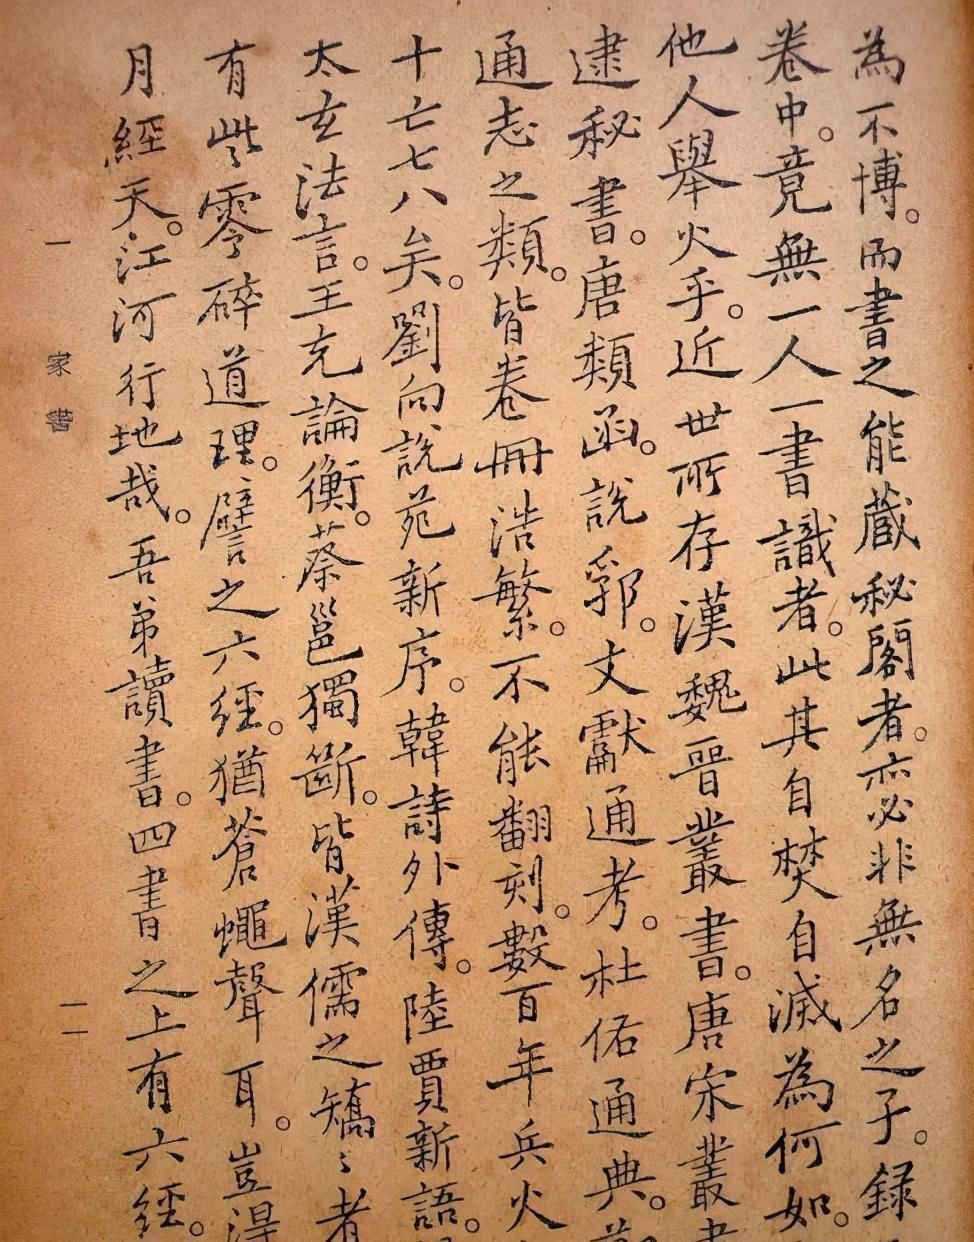 為不博。而書之能藏秘閣者。亦必非無名之子。録
卷中。竟無一人一書識者。此其自焚自滅為何如。
他人舉火乎。近世所存漢魏晉叢書。唐宋叢書
逮秘書。唐類函。說郛。文獻通考。杜佑通典。鄭
通志之類。皆卷冊浩繁。不能翻刻。數百年兵火
十亡七八矣。劉向說苑新序。韓詩外傳。陸賈新語。
太玄法言。王充論衡。蔡邕獨斷。皆漢儒之矯〻者
有此零碎道理。譬之六經。猶蒼蠅聲耳。豈得
月經天。江河行地哉。吾弟讀書。四書之上有六經。
一 家書 一一